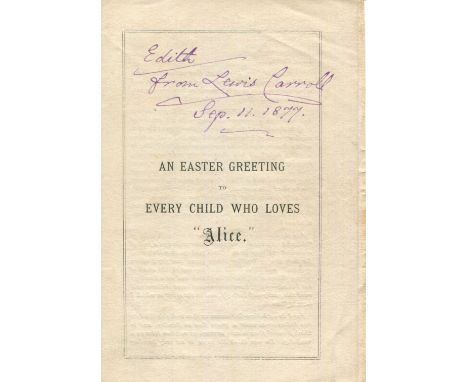 Edith
from Lewis Carroll
Sep. 11. 1877.
AN EASTER GREETING
TO
EVERY CHILD WHO LOVES
"Alice."